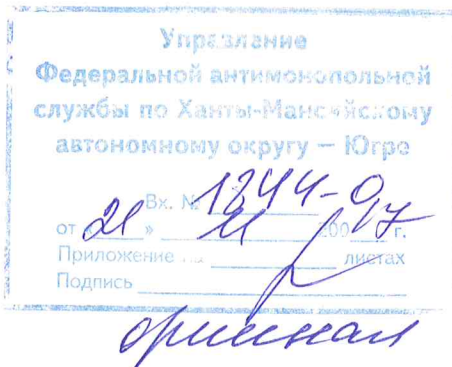 Управление
Федеральной антимонопольной
службы по Ханты-Мансийскому
автономному округу — Югре
Вх. №
от «21» 11 200 г.
Приложение на листах
Подпись
оригинал